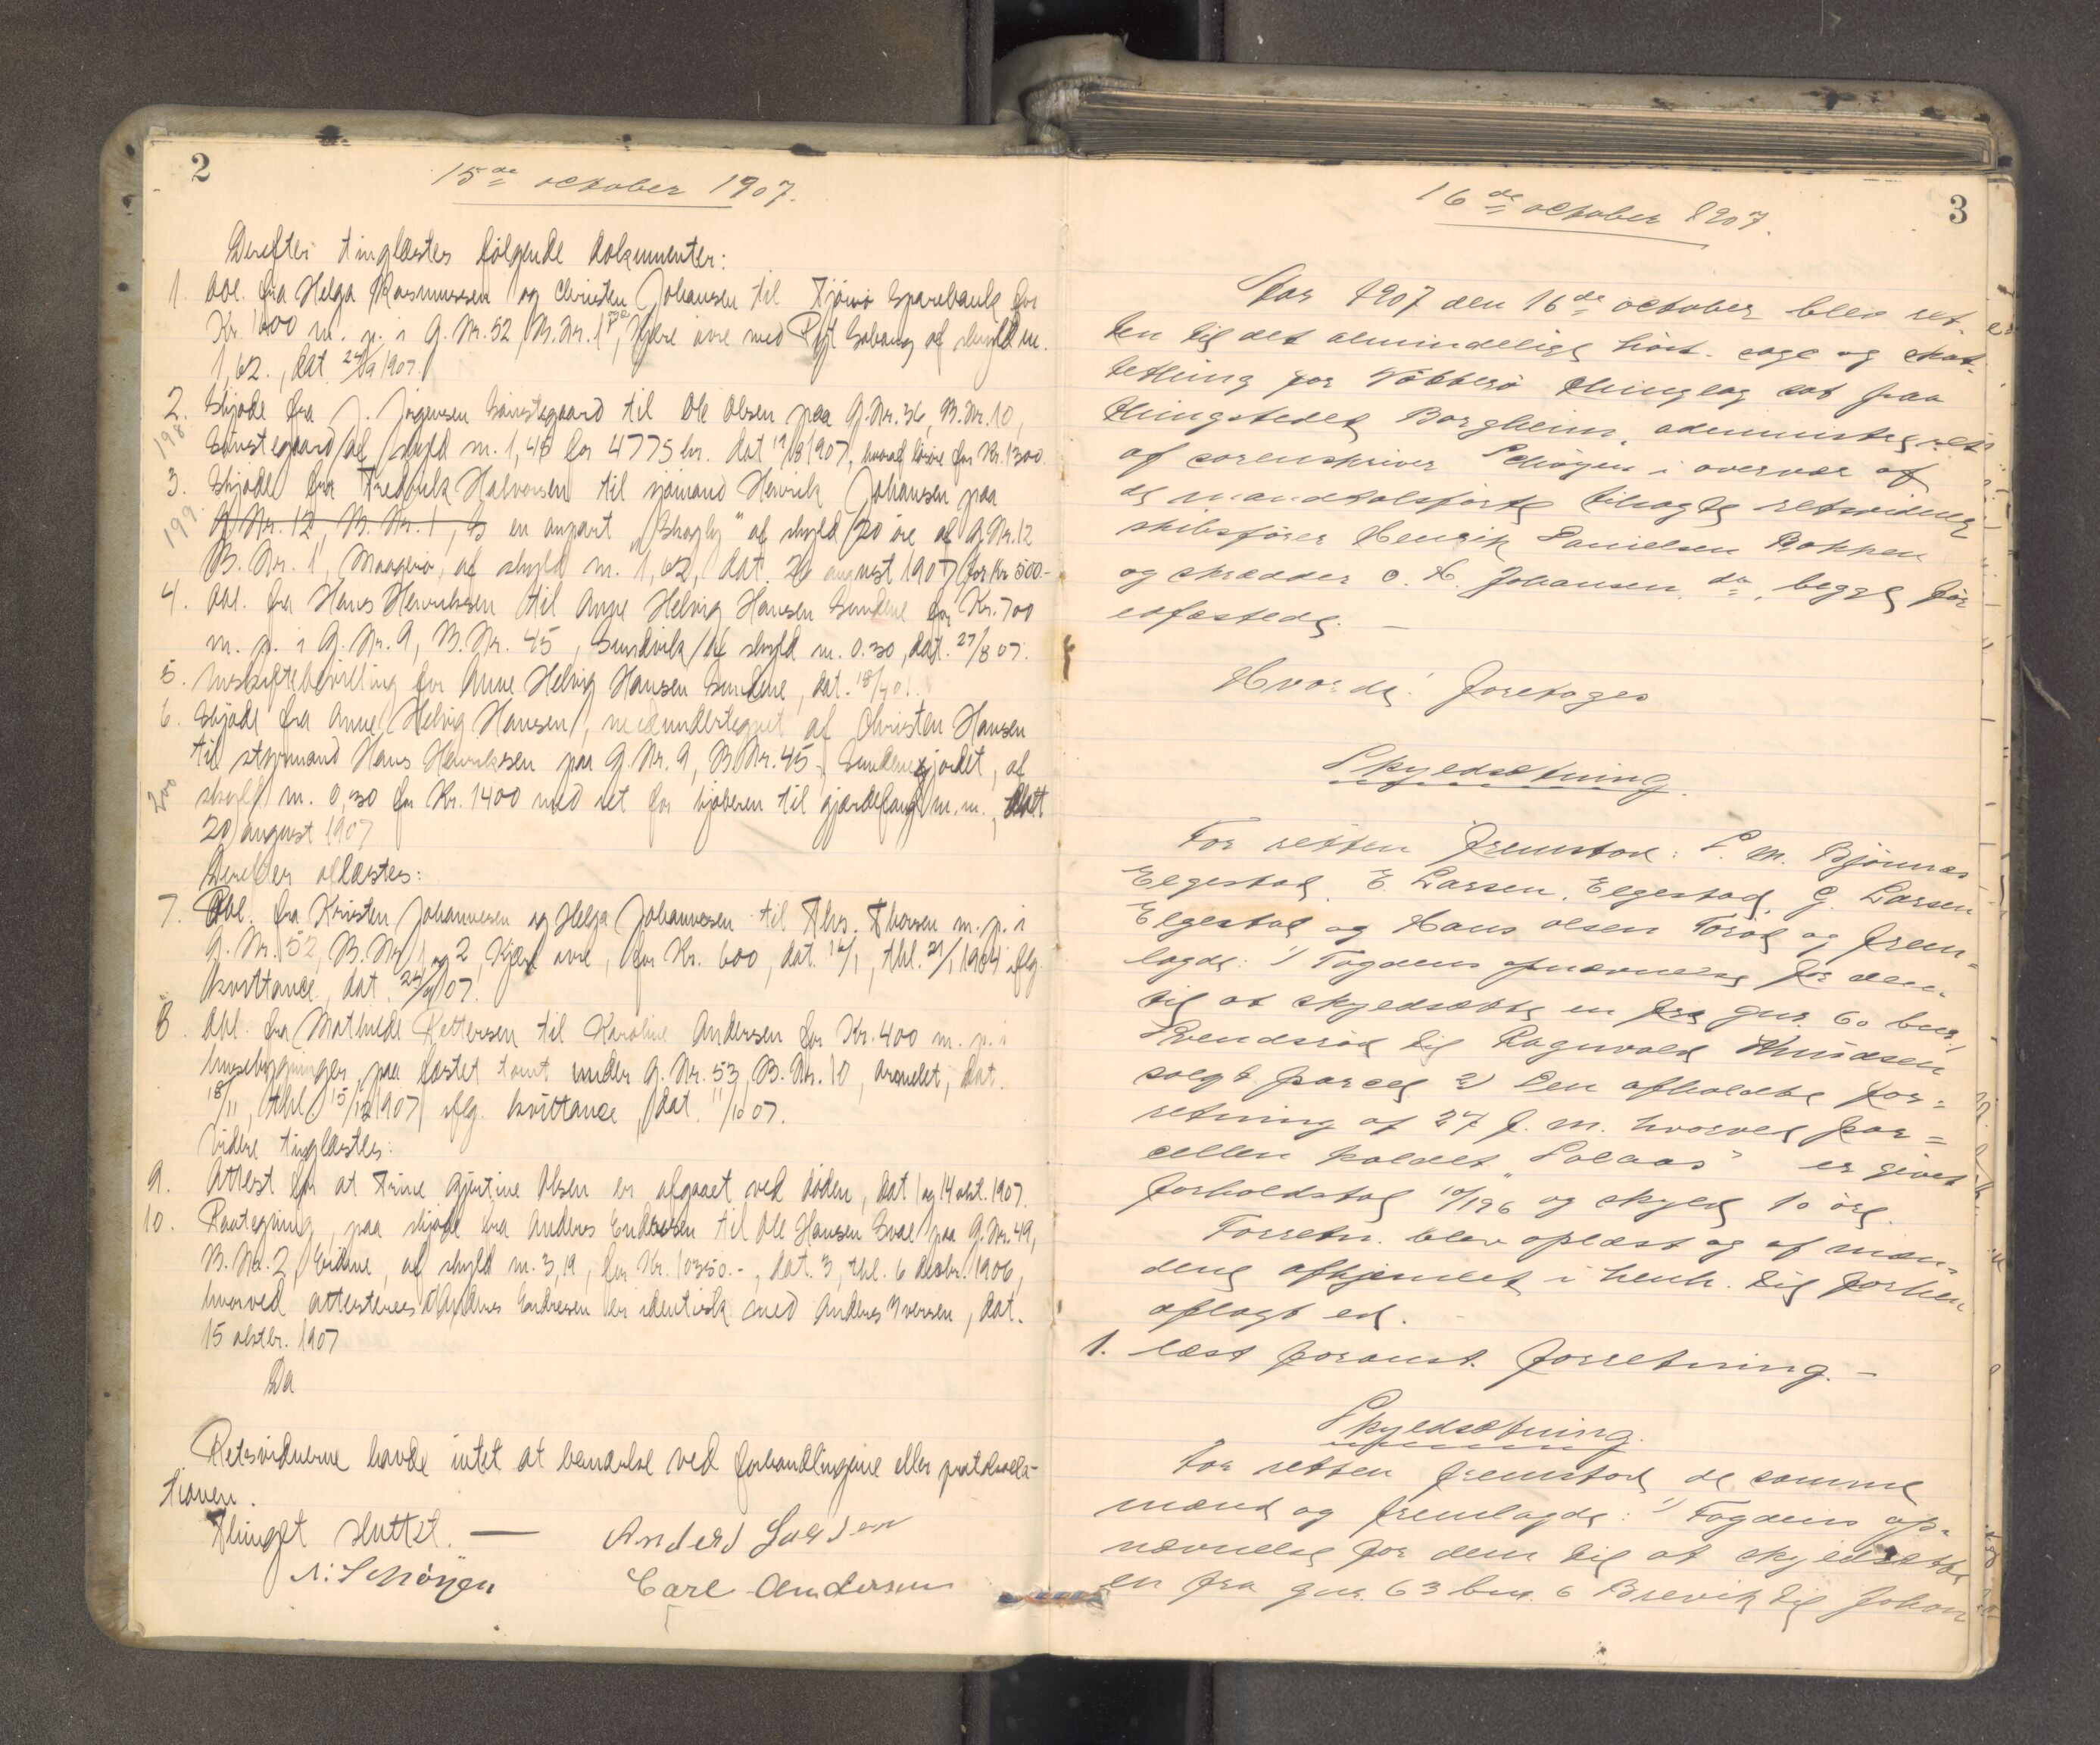 2
15de october 1907.
Derefter tinglæstes følgende dokumenter:
1. Obl. fra Helga Rasmussen og Christen Johansen til Tjömö Sparebank for
Kr. 1200 m. p. i G. Nr. 52, B. Nr. 1, Kjære övre med af skyld m.
1,62., dat. 24/9 1907.
2. Skjöde fra J. Jörgensen Sönstegaard til Ole Olsen paa G. Nr. 36, B. Nr. 10,
198
Sönstegaard af skyld m. 1,48 for 4775 kr. dat 19/8 1907, hvoraf lösöre for Kr. 1300.
3. Skjöde fra Fredrik Halvorsen til sjömand Henrik Johansen paa
199.
G. Nr. 12, B. Nr. 1, en anpart „Skogly" af skyld 20 öre af G. Nr. 12
B. Nr. 1, Maagerö, af skyld m. 1,62, dat. 26 august 1907 for Kr 500.-
4. Obl. fra Hans Henriksen til Anne Helvig Hansen Sundene for Kr. 700
m. p. i G. Nr. 9, B. Nr. 45, Sundvik af skyld m. 0.30, dat. 27/8 07.
5. Uskiftebevilling for Anne Helvig Hansen Sundene, dat.
6. Skjöde fra Anne Helvig Hansen, medundertegnet af Christen Hansen
til styrmand Hans Henriksen paa G. Nr. 9, B. Nr. 45, Sundenegjordet, af
200
skyld m. 0,30 for Kr. 1400 med ret for kjöberen til gjærdefang m. m., datt
20 august 1907
Derefter aflæstes:
7. Obl. fra Kristen Johannesen og Helga Johannesen til Ths. Thorsen m. p. i
G. Nr. 52, B. Nr. 1 og 2, Kjære övre, for Kr. 600, dat. 16/1, thl. 21/1 1904 iflg.
kvittance, dat. 24/9 07.
8. Obl. fra Mathilde Pettersen til Karoline Andersen for Kr. 400 m. p. i
husebygninger paa fæstet tomt under G. Nr. 53, B. Nr. 10, Arondet, dat.
18/11, thl. 15/12 1907, iflg. kvittance, dat. 11/10 07.
Videre tinglæstes:
9. Attest for at Trine Gjertine Olsen er afgaaet ved döden, dat 1 og 14 okt. 1907.
10. Paategning paa skjöde fra Anders Endresen til Ole Hansen Svae paa G. Nr. 49,
B. Nr. 2, Eidene, af skyld m. 3,19, for Kr. 10350.-, dat. 3, thl. 6 decbr. 1906,
hvorved attesteres at Anders Endresen er identisk med Anders Iversen, dat.
15 oktbr. 1907
Da
Retsvidnerne havde intet at bemærke ved forhandlingerne eller protokola-
tionen.
Thinget sluttet. —
Anders Larsen
N. Schöyen
Carl Andersen
3
16de october 1907.
Aar 1907 den 16de october blev ret-
ten til det almindelige höst- sage og skat-
tething for Nötterö thinglag sat paa
thingstedet Borgheim, administreret
af sorenskriver Schöyen i overvær af
de mandtalsförte tilsagte retsvidner
skibsförer Henrik Danielsen Bokken
og skrædder C. A. Johansen, do, begge för
edfæstede. —
Hvorda! foretoges
Skyldsætning.
For retten fremstod: S. M. Bjönnæs
Elgestad, E. Larsen, Elgestad, G. Larsen
Elgestad og Hans Olsen Toröd og frem-
lagde: 1) Fogdens opnævnelse for dem
til at skyldsætte en fra gnr. 60 bnr. 1
Svendsröd til Ragnvald Knudsen
solgt parcel 2) Den afholdte for-
retning af 27 f. m. hvorved par-
cellen kaldet „Solaas" er givet
forholdstal 10/196 og skyld 10 öre.
Forretn. blev oplæst og af mæn-
dene afhjemlet i henh. til forhen
aflagt ed.
1. læst foranst. forretning. —
Skyldsætning.
For retten fremstod de samme
mænd og fremlagde: 1) Fogdens op-
nævnelse for dem til at skyldsætte
en fra gnr. 63 bnr. 6 Brevik til Johan